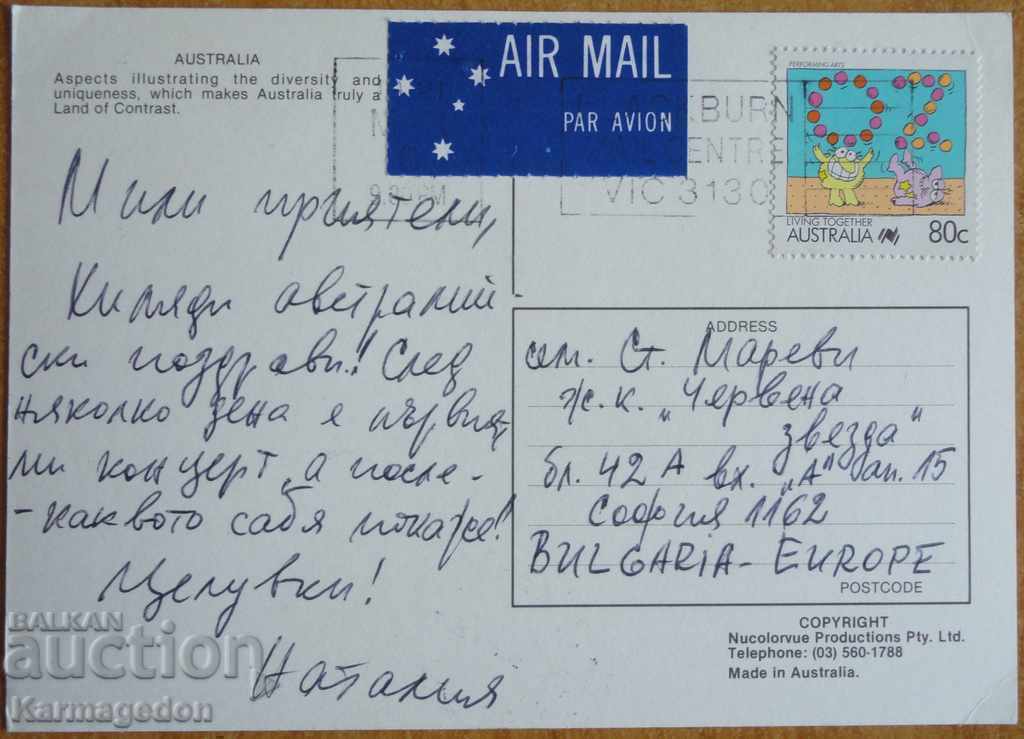 AUSTRALIA
Aspects illustrating the diversity and
uniqueness, which makes Australia truly a
Land of Contrast.
AIR MAIL
PAR AVION
VIC 3130
PERFORMING ARTS
OZ
LIVING TOGETHER
AUSTRALIA 80c
Мили приятели,
Хиляди австралий-
ски поздрави! След
няколко дена е първият
ми концерт, а после-
-каквото сабя покаже!
Целувки!
Наталия
ADDRESS
сем. Ст. Мареви
ж.к. „Червена
звезда“
бл. 42А вх. „А“ ап. 15
София 1162
BULGARIA - EUROPE
POSTCODE
COPYRIGHT
Nucolorvue Productions Pty. Ltd.
Telephone: (03) 560-1788
Made in Australia.
BALKAN
auction
Karmagedon